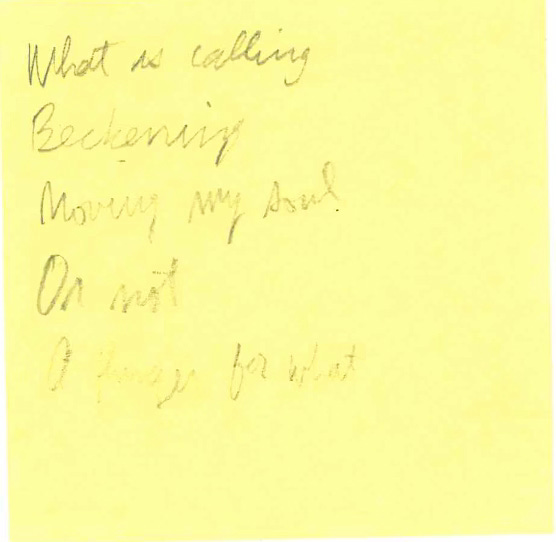 What is calling
Beckening
Moving my soul
Or not
A hunger for what